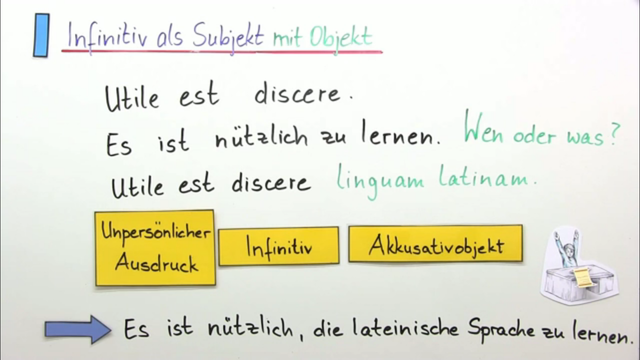 Infinitiv als Subjekt mit Objekt
Utile est discere.
Es ist nützlich zu lernen. Wen oder was?
Utile est discere linguam latinam.
Unpersönlicher Ausdruck
Infinitiv
Akkusativobjekt
Es ist nützlich, die lateinische Sprache zu lernen.